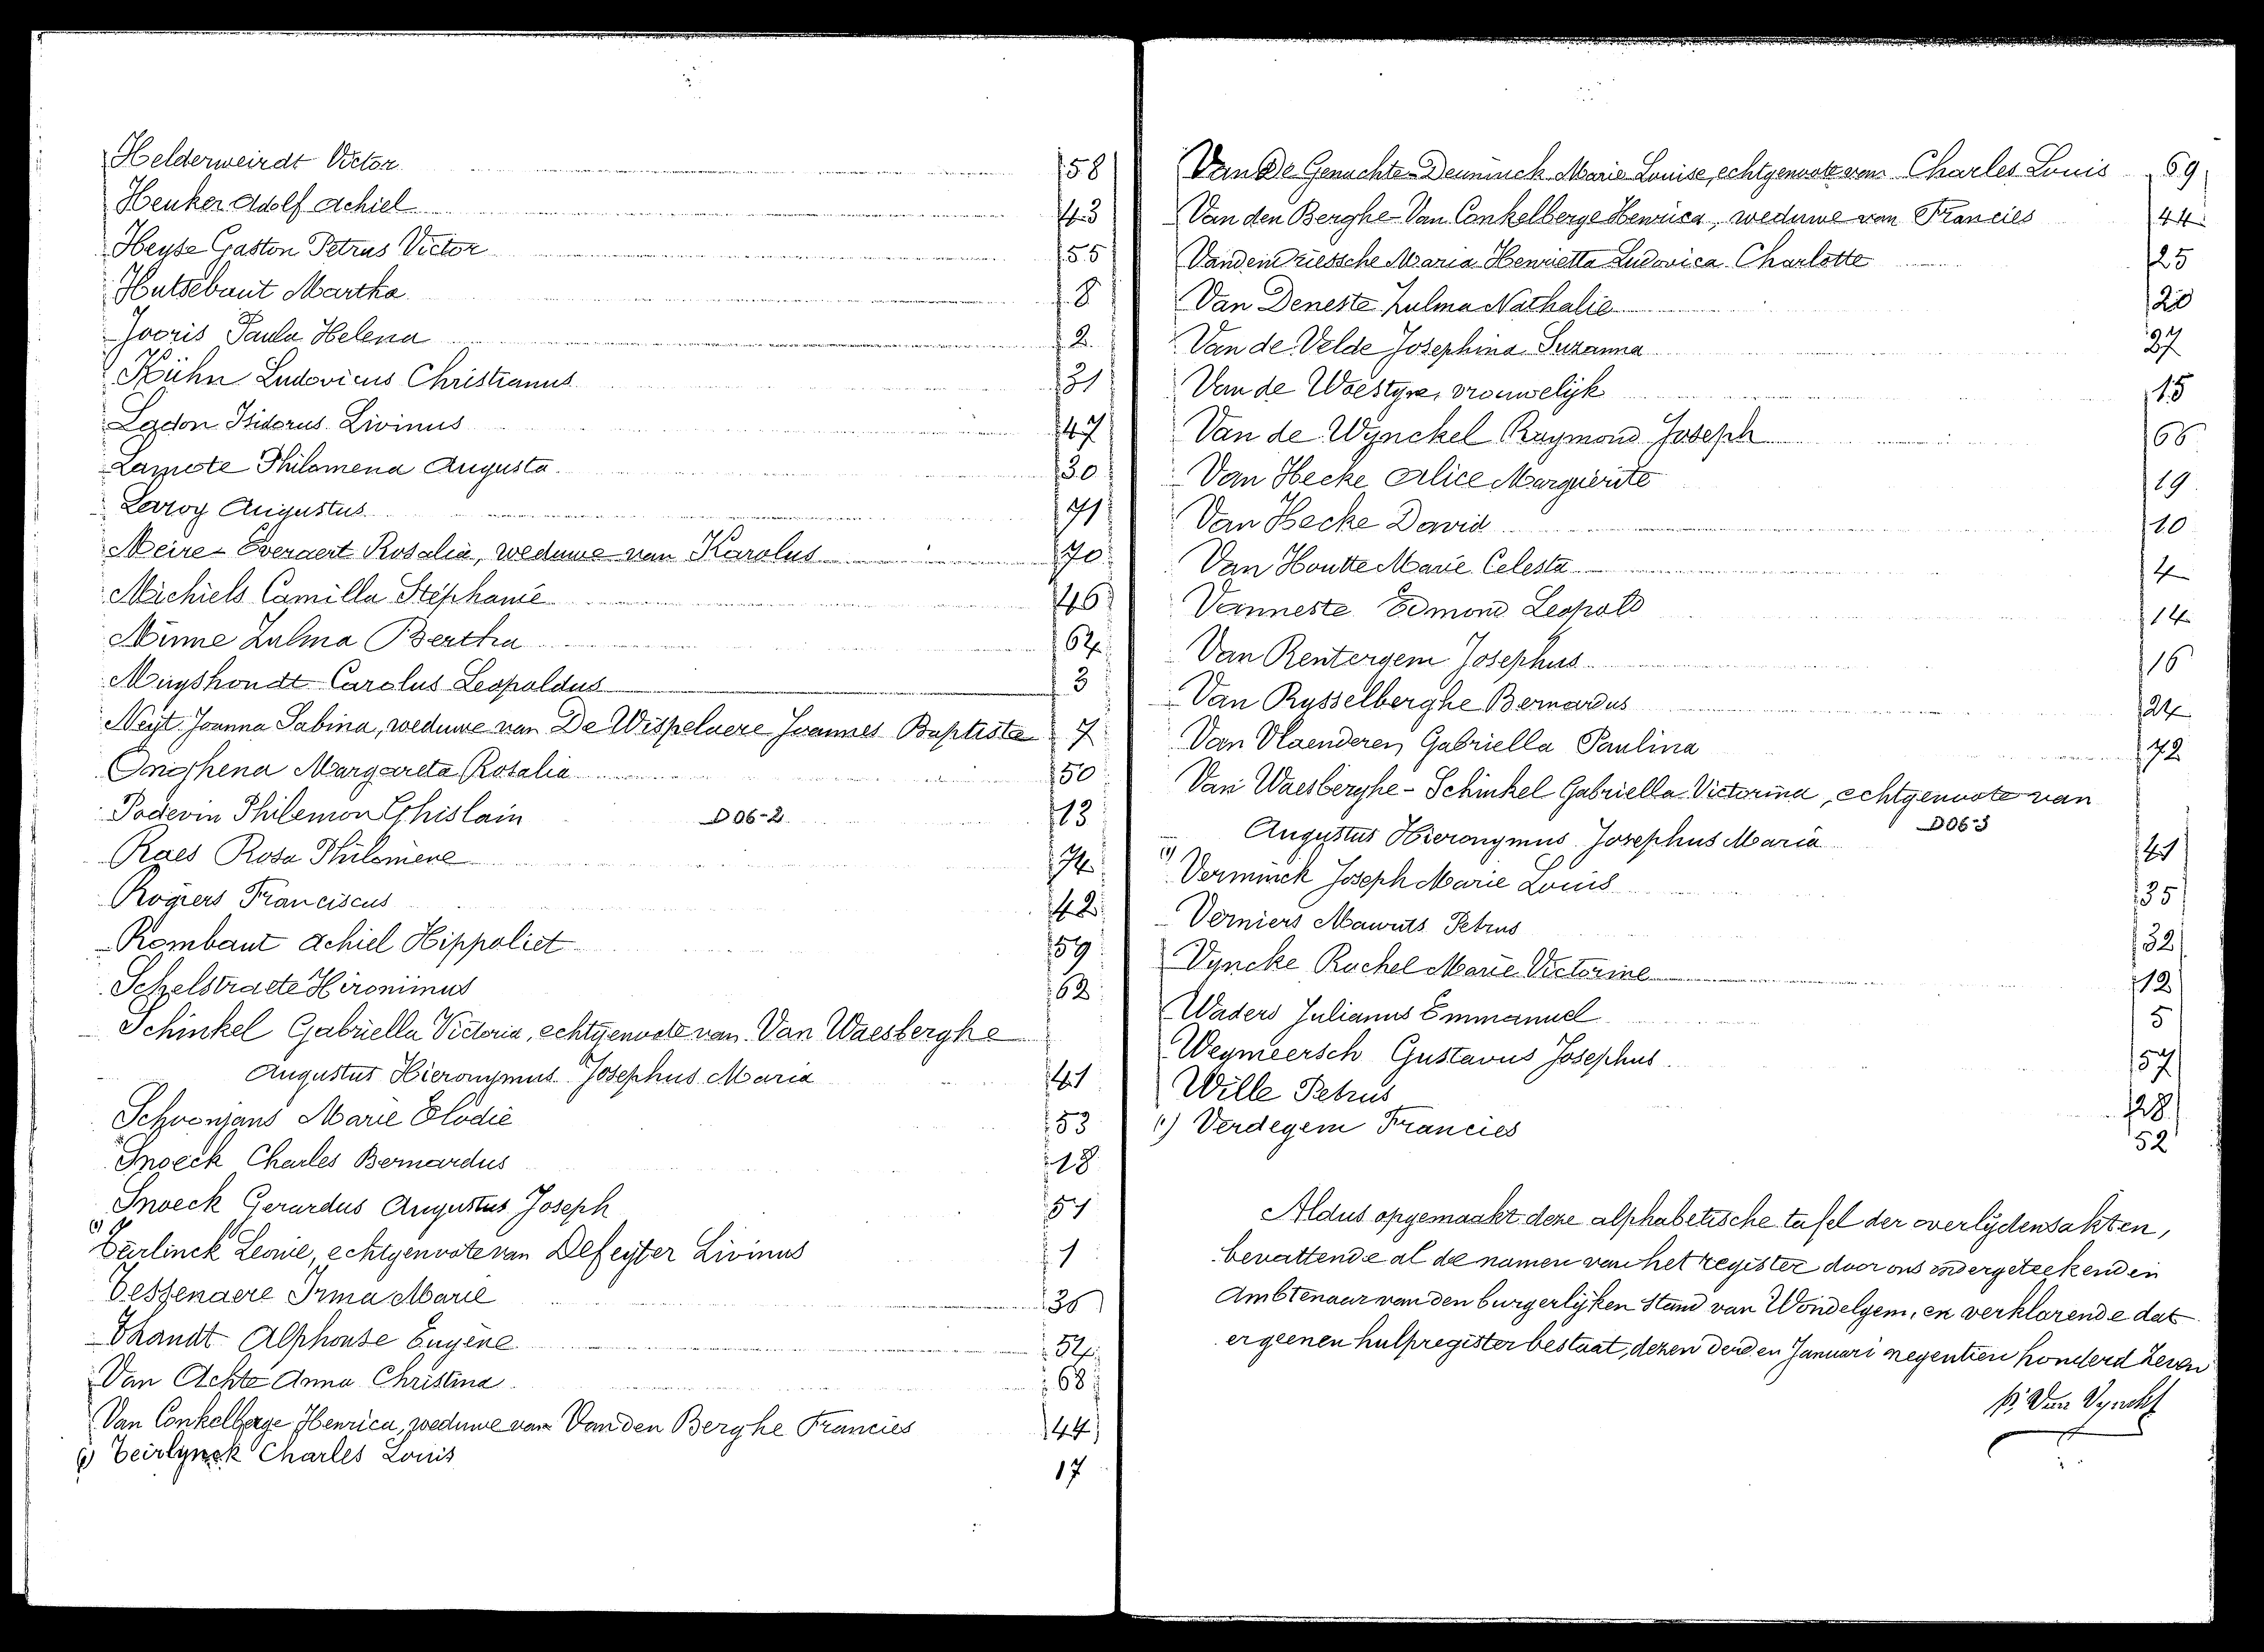 Helderweirdt Victor 58
Henker Adolf Achiel 43
Heyse Gaston Petrus Victor 55
Hutsebaut Martha 8
Jooris Paula Helena 2
Kühn Ludovicus Christianus 31
Ladon Isidorus Livinus 47
Lamote Philomena Augusta 30
Leroy Augustus 71
Meire-Everaert Rosalia, weduwe van Karolus 70
Michiels Camilla Stéphanie 46
Minne Zulma Bertha 64
Muyshondt Carolus Leopoldus 3
Neyt Joanna Sabina, weduwe van De Wispelaere Joannes Baptista 7
Onghena Margareta Rosalia 50
Podevin Philemon Ghislain D06-2 13
Raes Rosa Philomene 74
Rogiers Franciscus 42
Rombaut Achiel Hippoliet 59
Schelstraete Hironimus 62
Schinkel Gabriella Victoria, echtgenoote van Van Waesberghe
Augustus Hieronymus Josephus Maria 41
Schoonjans Marie Elodie 53
Snoeck Charles Bernardus 18
Snoeck Gerardus Augustus Joseph 51
Teirlinck Leonie, echtgenoote van Defeyter Livinus 1
Tessenaere Irma Marie 36
Thandt Alphonse Eugène 54
Van Achte Anna Christina 68
Van Conkelberge Henrica, weduwe van Van den Berghe Francies 44
(1) Teirlynck Charles Louis 17
Van De Genachte-Deuninck Marie Louise, echtgenoote van Charles Louis 69
Van den Berghe-Van Conkelberge Henrica, weduwe van Francies 44
Vanden Driessche Maria Henrietta Ludovica Charlotte 25
Van Deneste Zulma Nathalie 20
Van de Velde Josephina Suzanna 37
Van de Woestyne, vrouwelijk 15
Van de Wynckel Raymond Joseph 66
Van Hecke Alice Marguerite 19
Van Hecke David 10
Van Houtte Marie Celesta 4
Vanneste Edmond Leopold 14
Van Rentergem Josephus 16
Van Rysselberghe Bernardus 24
Van Vlaenderen Gabriella Paulina 72
Van Waesberghe-Schinkel Gabriella Victorina, echtgenoote van
Augustus Hieronymus Josephus Maria D06-3 41
(1) Verminck Joseph Marie Louis 35
Verniers Maurits Petrus 32
Vyncke Rachel Marie Victorine 12
Waders Julianus Emmanuel 5
Weymeersch Gustavus Josephus 57
Wille Petrus 28
(1) Verdegem Francies 52
Aldus opgemaakt deze alphabetische tafel der overlydensakten,
bevattende al de namen van het register door ons ondergeteekenden
Ambtenaar van den burgerlijken Stand van Wondelgem, en verklarende dat
er geenen hulpregister bestaat, dezen derden Januari negentien honderd zeven